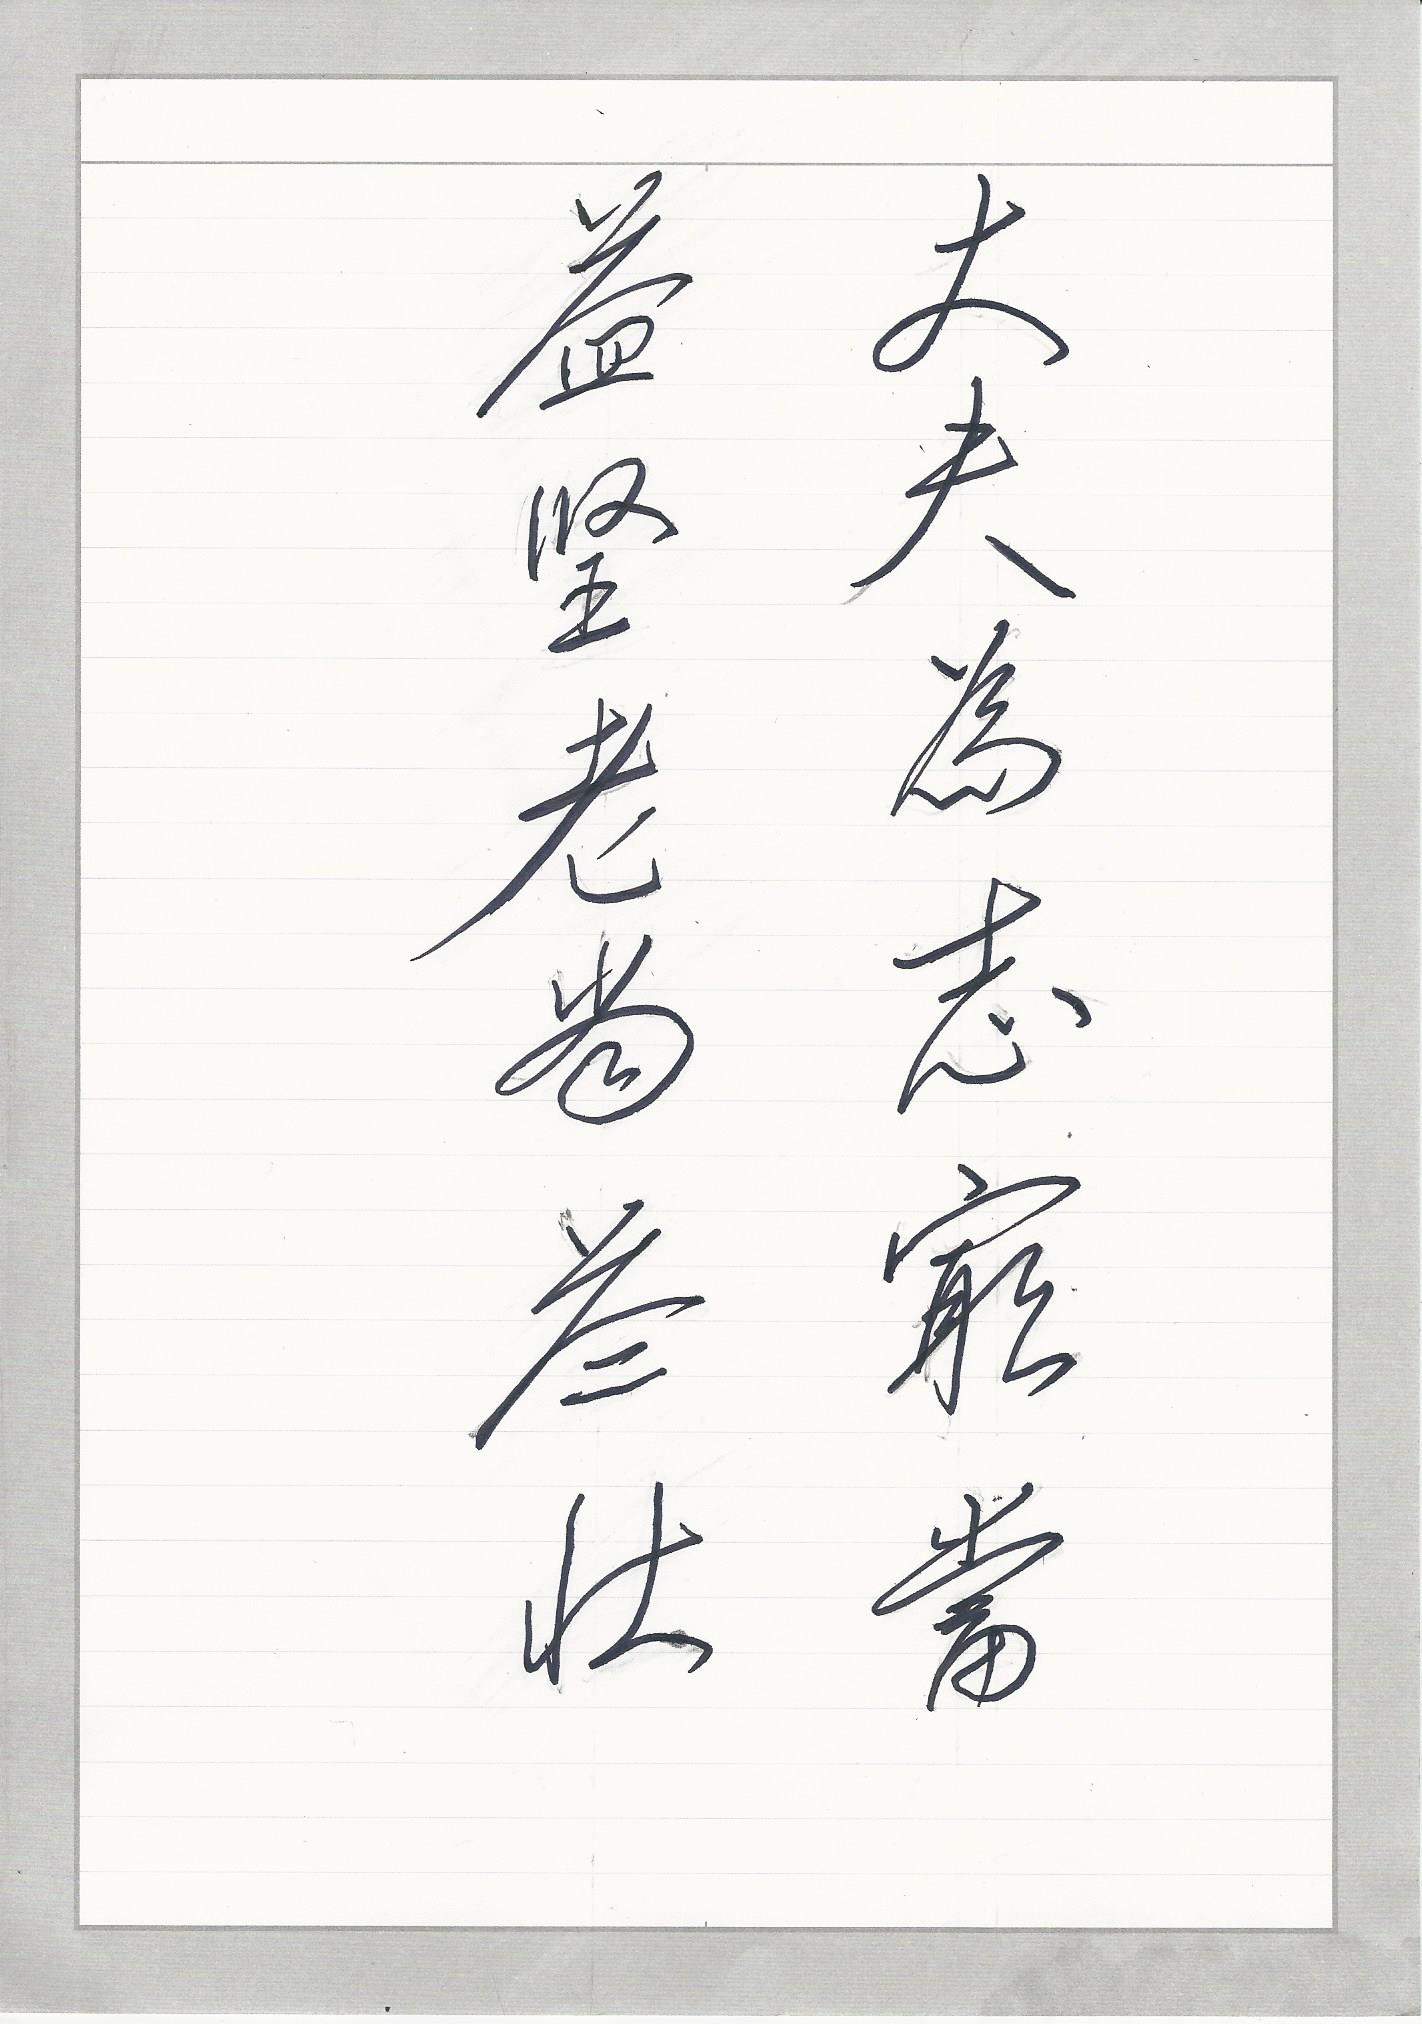 丈夫為志窮當
益堅老當益壯